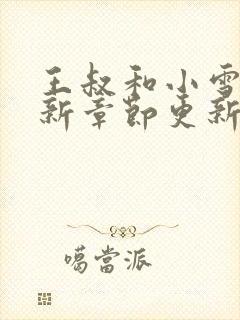 王叔和小雪
新章節更新
噶當派